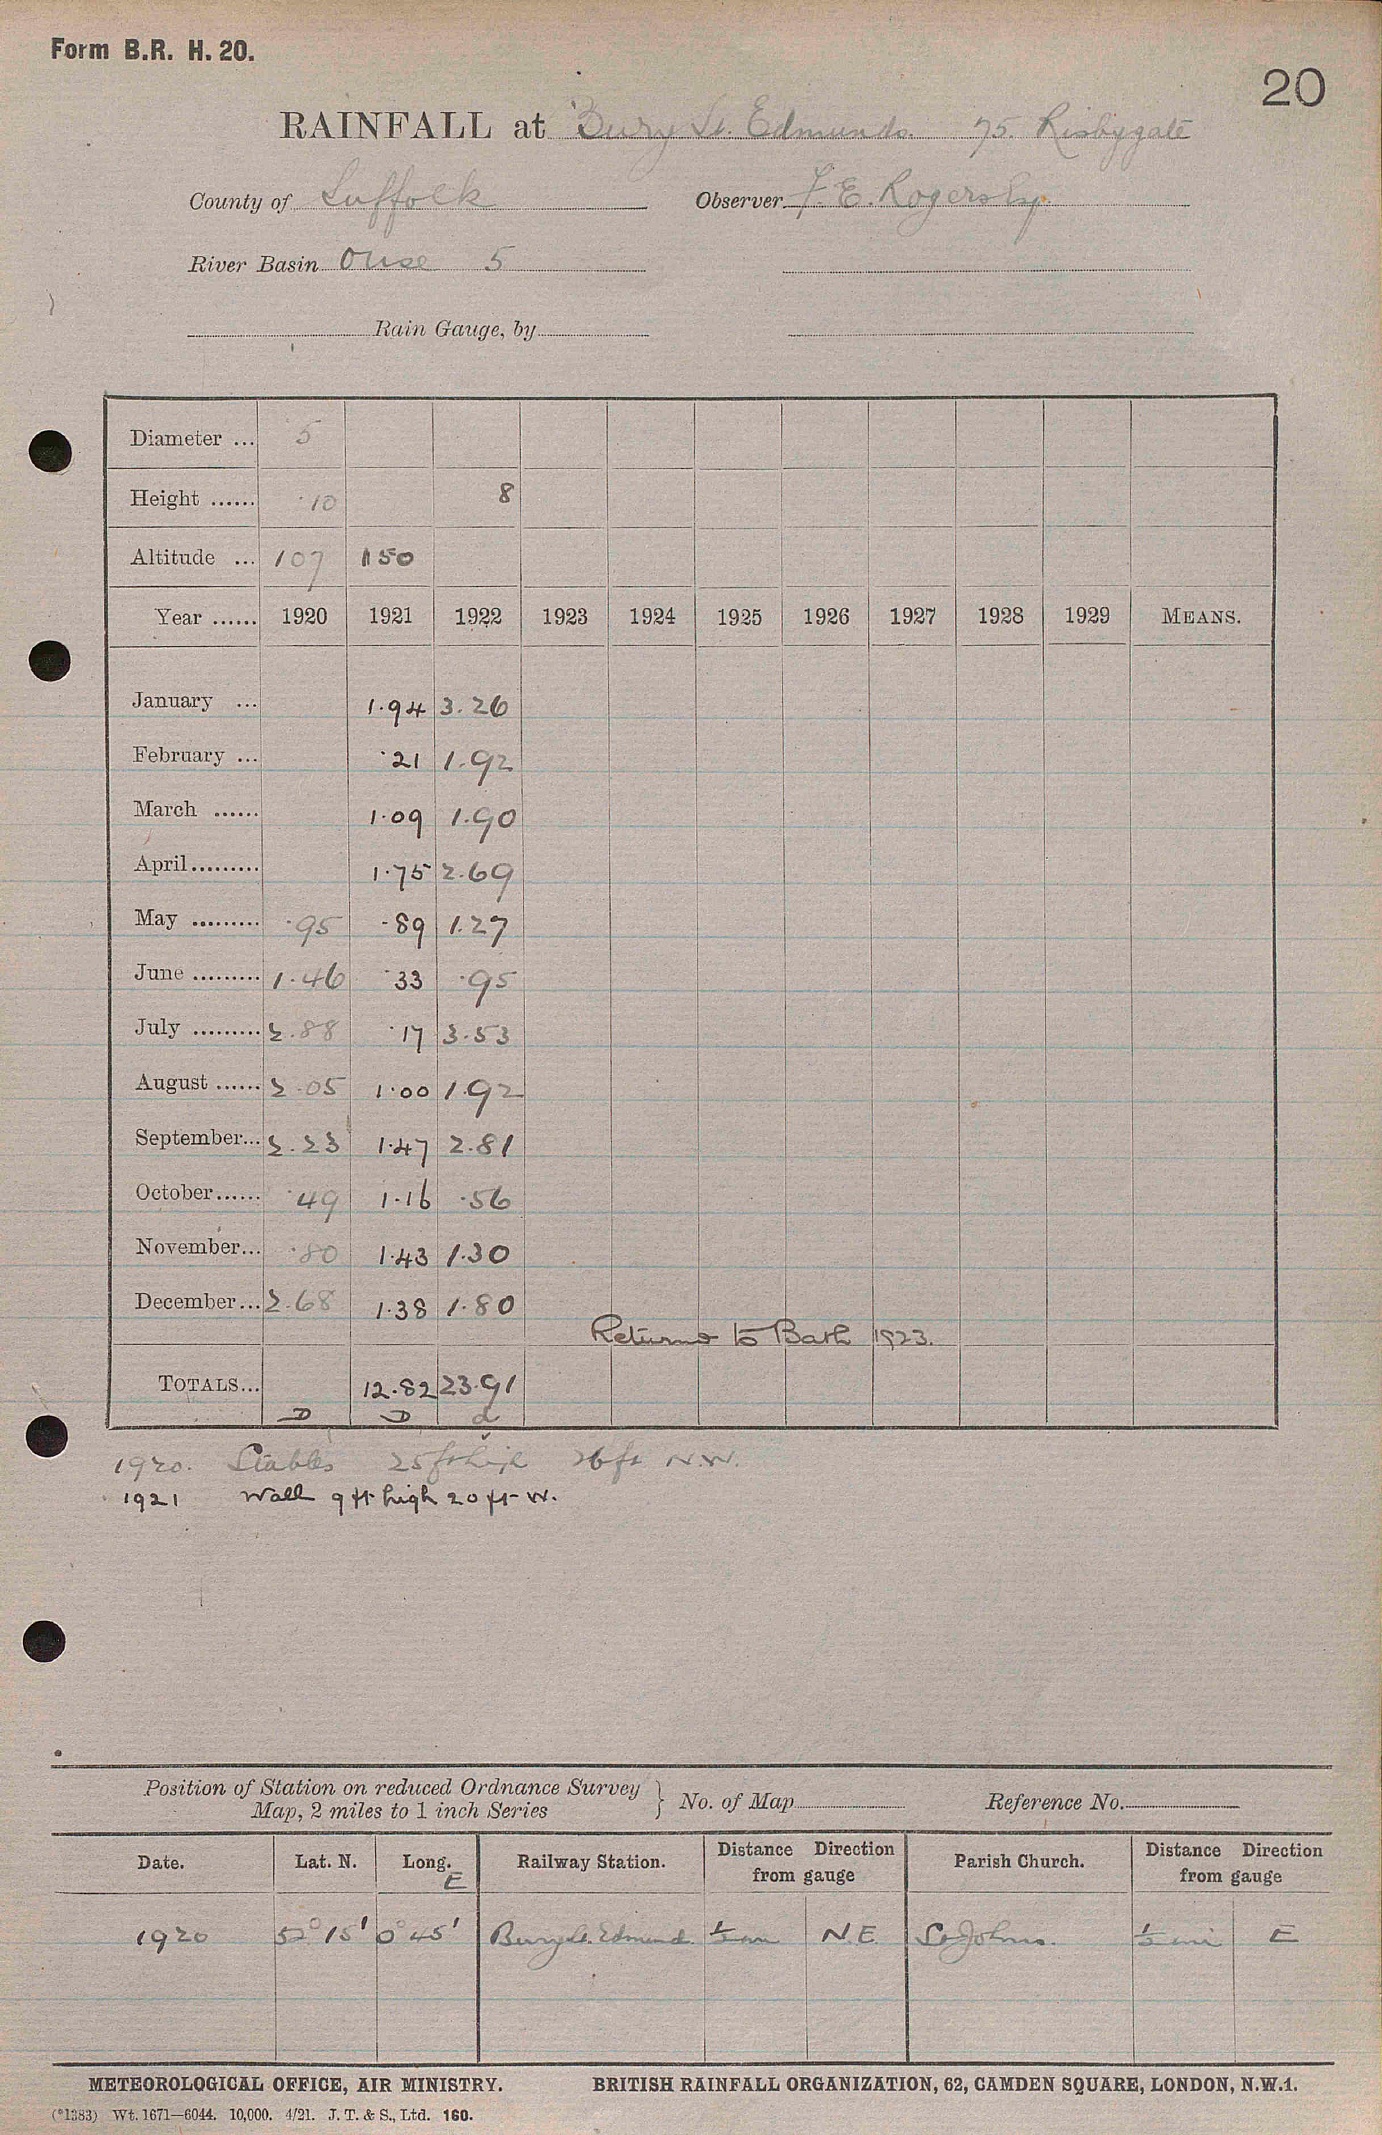 Form B.R. H. 20.
20
RAINFALL at Bury St. Edmunds. 75. Risbygate
County of Suffolk Observer F. E. Rogers Esq.
River Basin Ouse 5
Rain Gauge, by
Diameter ... 5
Height ...... 10 8
Altitude ... 107 150
Year ...... 1920 1921 1922 1923 1924 1925 1926 1927 1928 1929 MEANS.
January ... 1.94 3.26
February ... .21 1.92
March ...... 1.09 1.90
April......... 1.75 2.69
May ......... .95 .89 1.27
June ......... 1.46 .33 .95
July ......... 2.88 .17 3.53
August ...... 2.05 1.00 1.92
September... 2.23 1.47 2.81
October...... .49 1.16 .56
November... .80 1.43 1.30
December... 2.68 1.38 1.80
Returns to Bath 1923.
TOTALS... 12.82 23.91
D D d
1920. Stables 25 ft high 26 ft N.W.
1921 Wall 9 ft high 20 ft W.
Position of Station on reduced Ordnance Survey
Map, 2 miles to 1 inch Series } No. of Map Reference No.
Date. Lat. N. Long. E Railway Station. Distance Direction from gauge Parish Church. Distance Direction from gauge
1920 52° 15' 0° 45' Bury St. Edmund. ½ mi N.E. St Johns. ½ mi E
METEOROLOGICAL OFFICE, AIR MINISTRY. BRITISH RAINFALL ORGANIZATION, 62, CAMDEN SQUARE, LONDON, N.W.1.
(*1383) Wt. 1671—6044. 10,000. 4/21. J. T. & S., Ltd. 160.